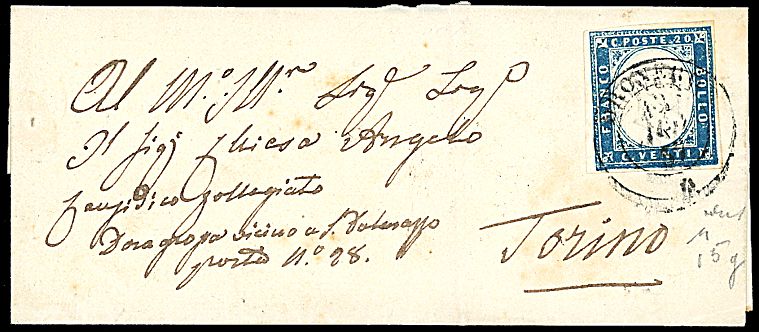 Al M.º Ill.re Sig.r Sig.r
Il Sig.r Chiesa Angelo
Causidico Collegiato
Doragrossa vicino a S. Dalmazzo
porta N.º 28.
Torino
C. POSTE. 20.
FRANCO
BOLLO
C. VENTI
BRONI
15 g